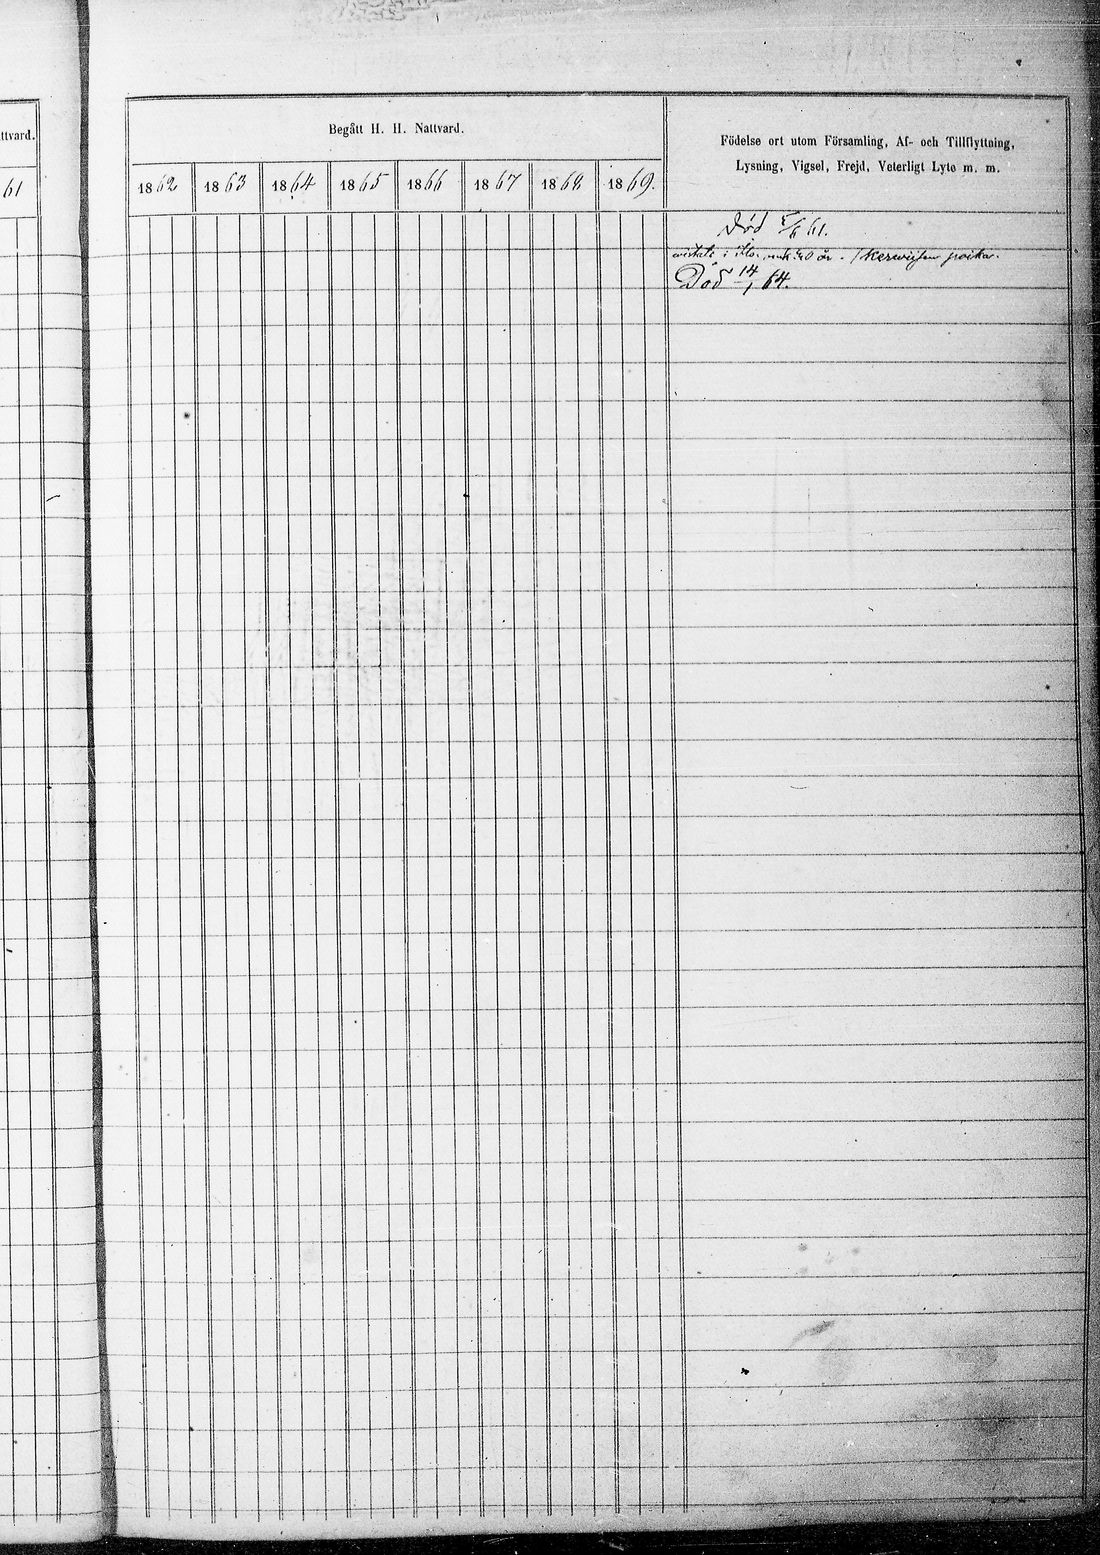 ttvard.
61
Begått H. H. Nattvard.
Födelse ort utom Församling, Af- och Tillflyttning,
Lysning, Vigsel, Frejd, Veterligt Lyte m. m.
1862 1863 1864 1865 1866 1867 1868 1869.
Död 5/6 61.
i 40 år. /
Död 14/1 64.